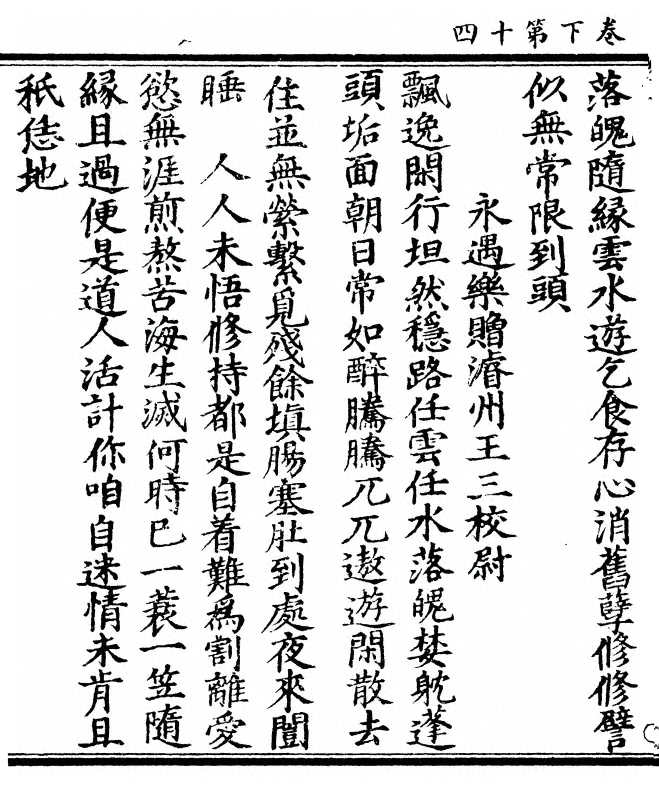 卷下第十四
落魄隨緣雲水遊乞食存心消舊孽修修譬
似無常限到頭
永遇樂贈濬州王三校尉
飄逸閑行坦然穩路任雲任水落魄婪躭蓬
頭垢面朝日常如醉騰騰兀兀遨遊閑散去
住並無縈繫覓殘餘填腸塞肚到處夜來闇
睡　人人未悟修持都是自着難爲割離愛
慾無涯煎熬苦海生滅何時已一蓑一笠隨
緣且過便是道人活計你咱自迷情未肯且
秖恁地